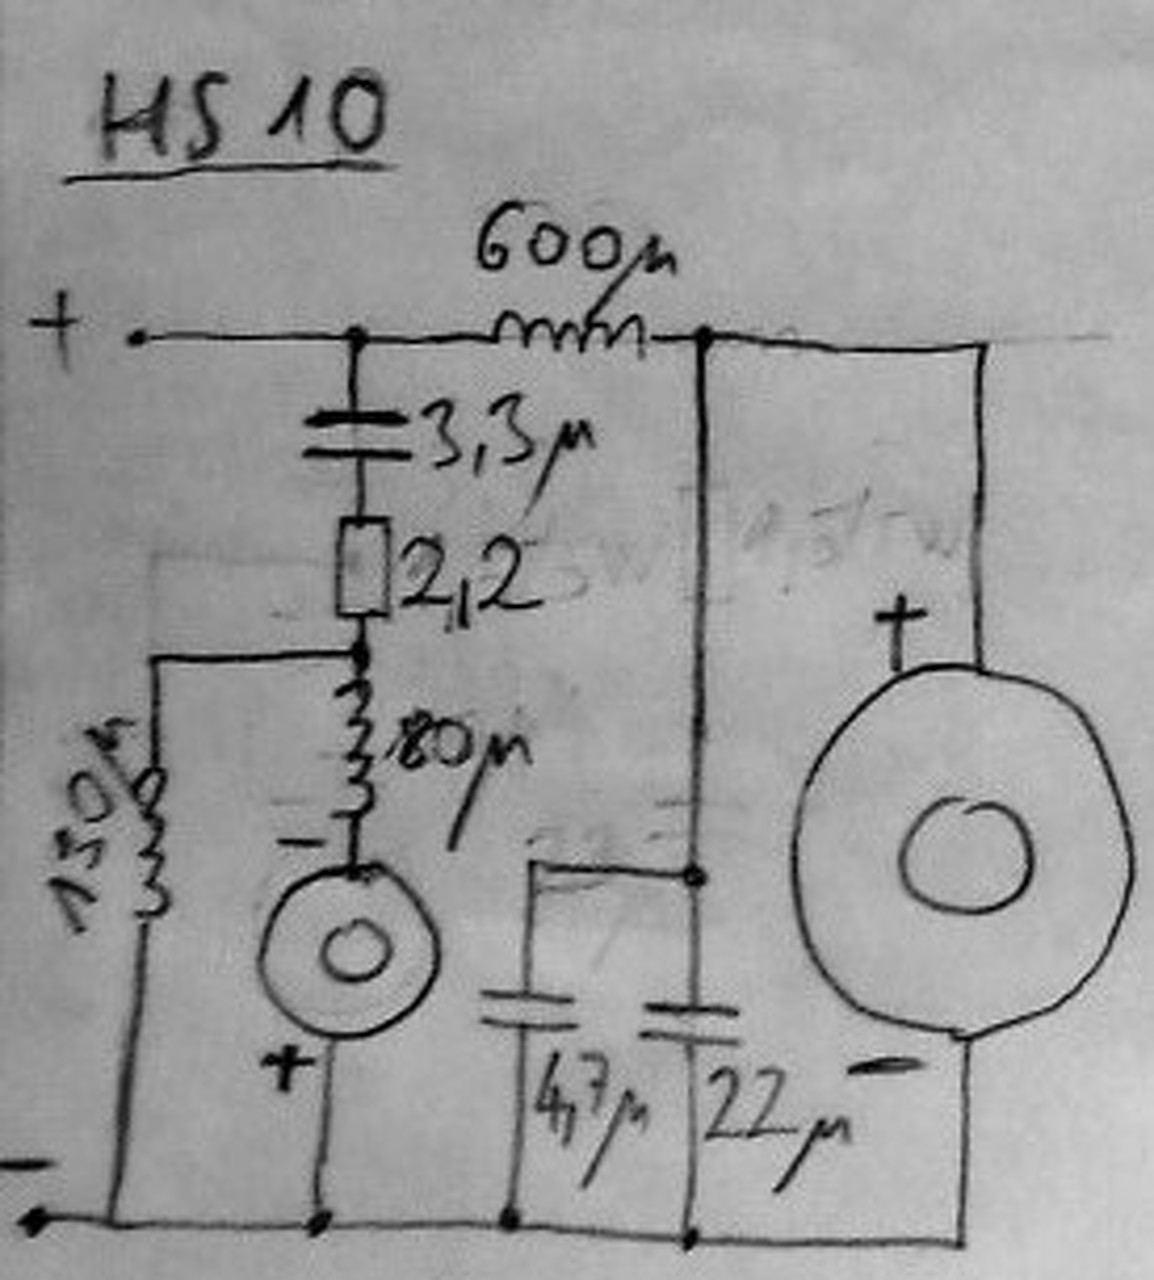 HS 10
600µ
+
3,3µ
2,2
+
80µ
150µ
-
+
4,7µ
22µ
-
-